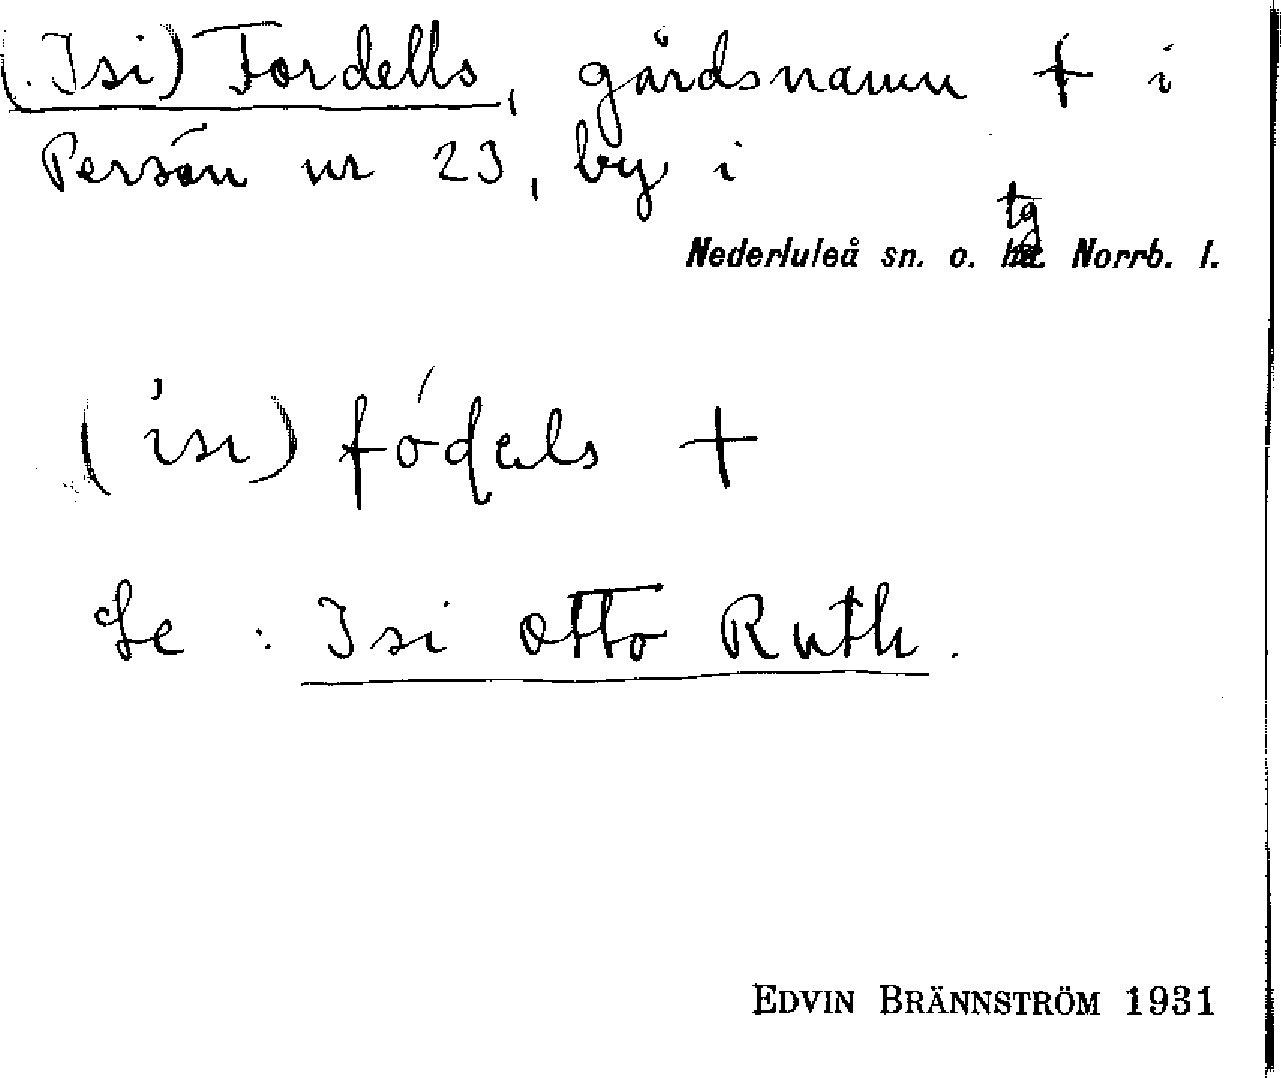 (Isi) Fordells, gårdsnamn + i
Persön nr 23, by i
tg
Nederluleå sn. o. Norrb. l.
(isi) fódels +
Se : Isi Otto Ruth.
EDVIN BRÄNNSTRÖM 1931